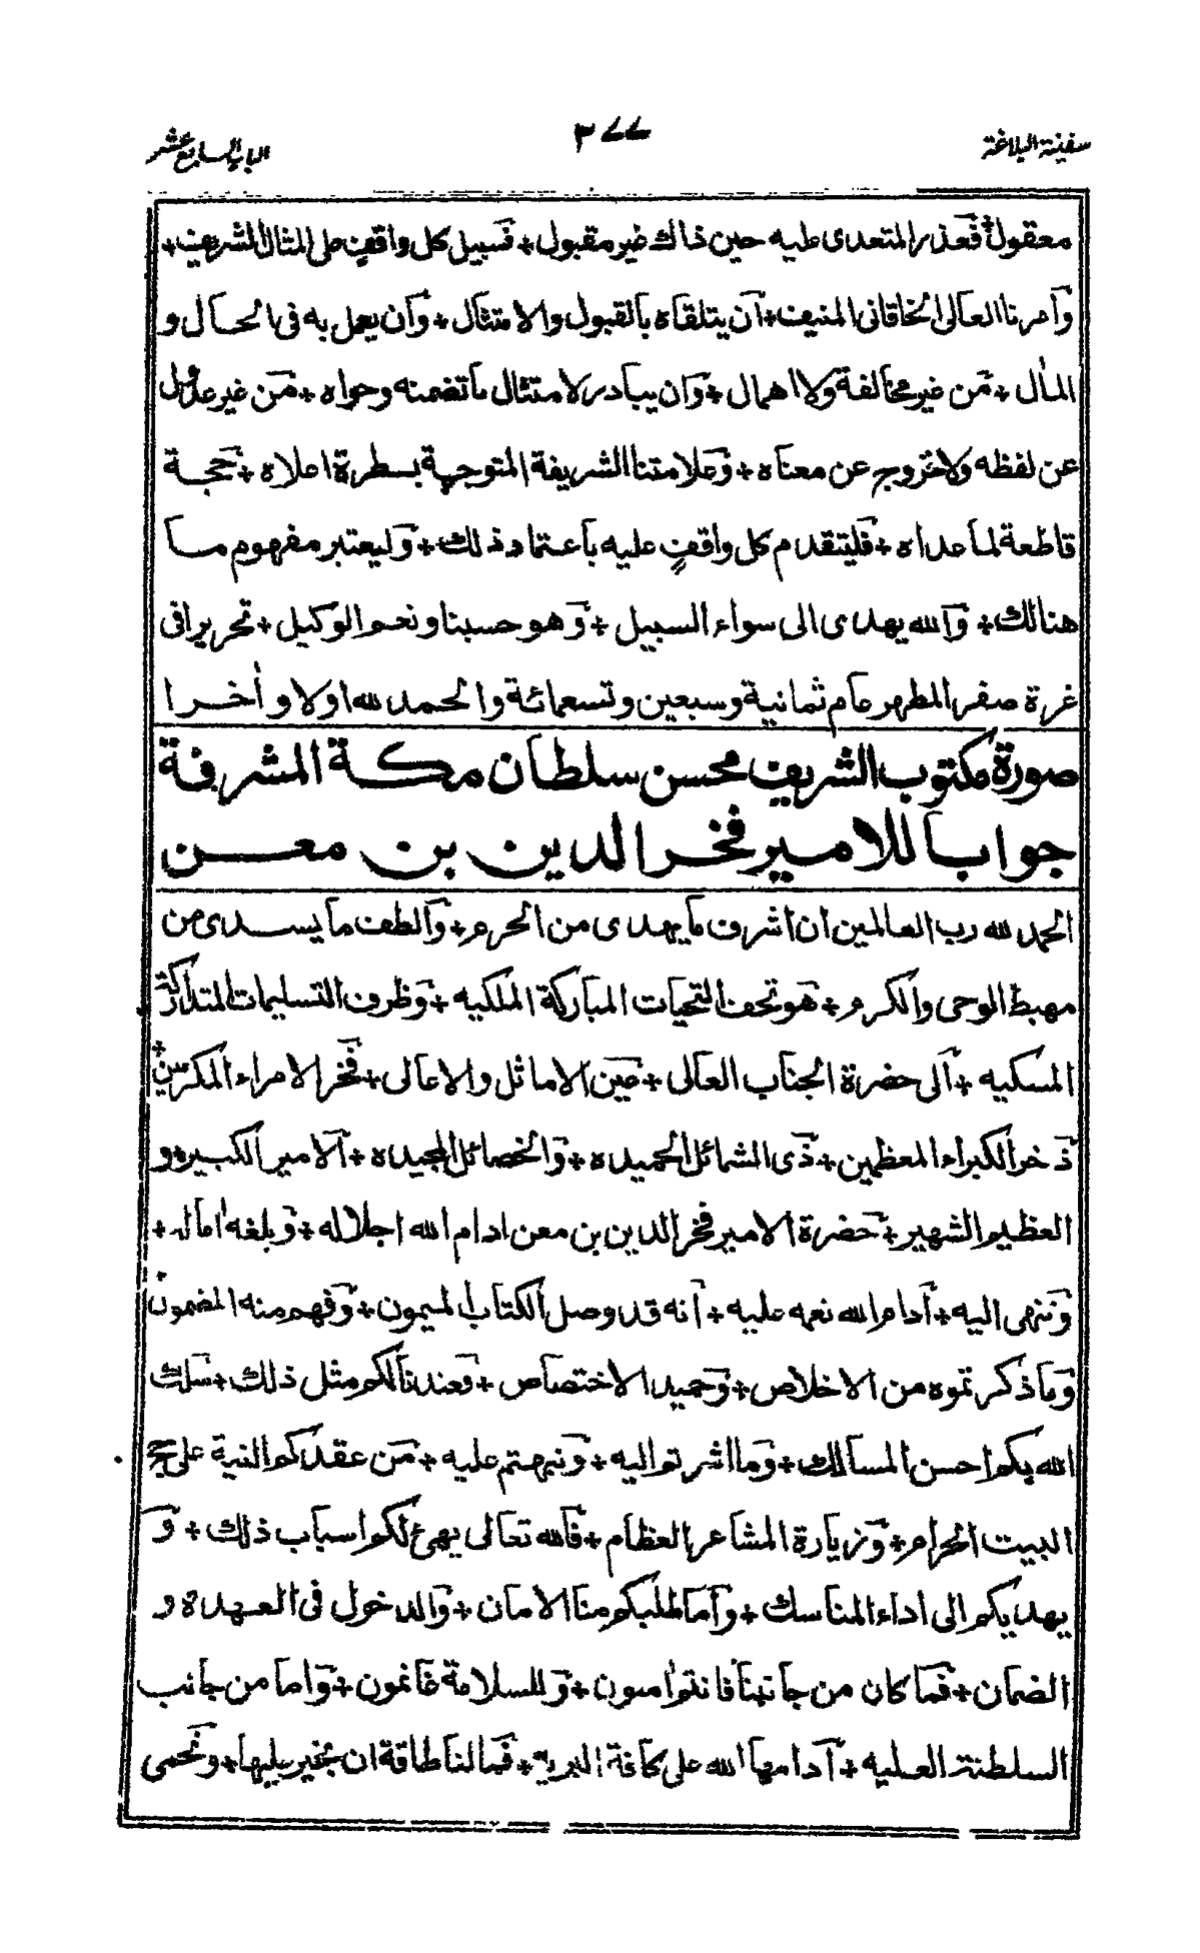 سفينة البلاغة
٣٧٧
الباب السابع عشر
معقول + فعذر المتعدى عليه حين ذاك غير مقبول + فسبيل كل واقف على المثال الشريف +
وآمرنا العالى الخاقانى المنيف + آن يتلقاه بالقبول والامتثال + وآن يعمل به فى الحال و
المآل + من غير مخالفة ولا اهمال + وان يبادر لامتثال ما تضمنه وحواه + من غير عدول
عن لفظه ولا خروج عن معناه + وعلامتنا الشريفة المتوجهة بسطرة اعلاه + حجة
قاطعة لما عداه + فليتقدم كل واقف عليه باعتماد ذلك + وليعتبر مفهوم ما
هنالك + والله يهدى الى سواء السبيل + وهو حسبنا ونعم الوكيل + تحريرا فى
غرة صفر المطهر عام ثمانية وسبعين وتسعمائة والحمد لله اولا وأخرا
صورة مكتوب الشريف محسن سلطان مكة المشرفة
جوابا للامير فخر الدين بن معن
الحمد لله رب العالمين ان اشرف ما يهدى من الحرم + والطف ما يسدى من
مهبط الوحى والكرم + هو تحف التحيات المباركة الملكيه + وظرف التسليمات المتداركة
المسكيه + آلى حضرة الجناب العالى + عين الاماثل والاعالى + فخر الامراء المكرمين +
ذخر الكبراء المعظمين + ذى الشمائل الحميده + والخصائل المجيده + آلامير الكبير و
العظيم الشهير + حضرة الامير فخر الدين بن معن ادام الله اجلاله + وبلغه اماله +
وننهى اليه + آدام الله نعمه عليه + آنه قد وصل الكتاب الميمون + وفهم منه المضمون
وما ذكرتموه من الاخلاص + وحميد الاختصاص + فعندنا لكم مثل ذلك + سلك
الله بكم احسن المسالك + وما اشرتم اليه + ونبهتم عليه + من عقدكم النية على حج
البيت الحرام + وزيارة المشاعر العظام + فالله تعالى يهيئ لكم اسباب ذلك + و
يهديكم الى اداء المناسك + وآما طلبكم منا الامان + والدخول فى العهدة و
الضمان + فما كان من جانبنا فانتم امنون + وللسلامة غانمون + واما من جانب
السلطنة العليه + آدامها الله على كافة البريه + فما لنا طاقة ان نخير يليها + ونحمى